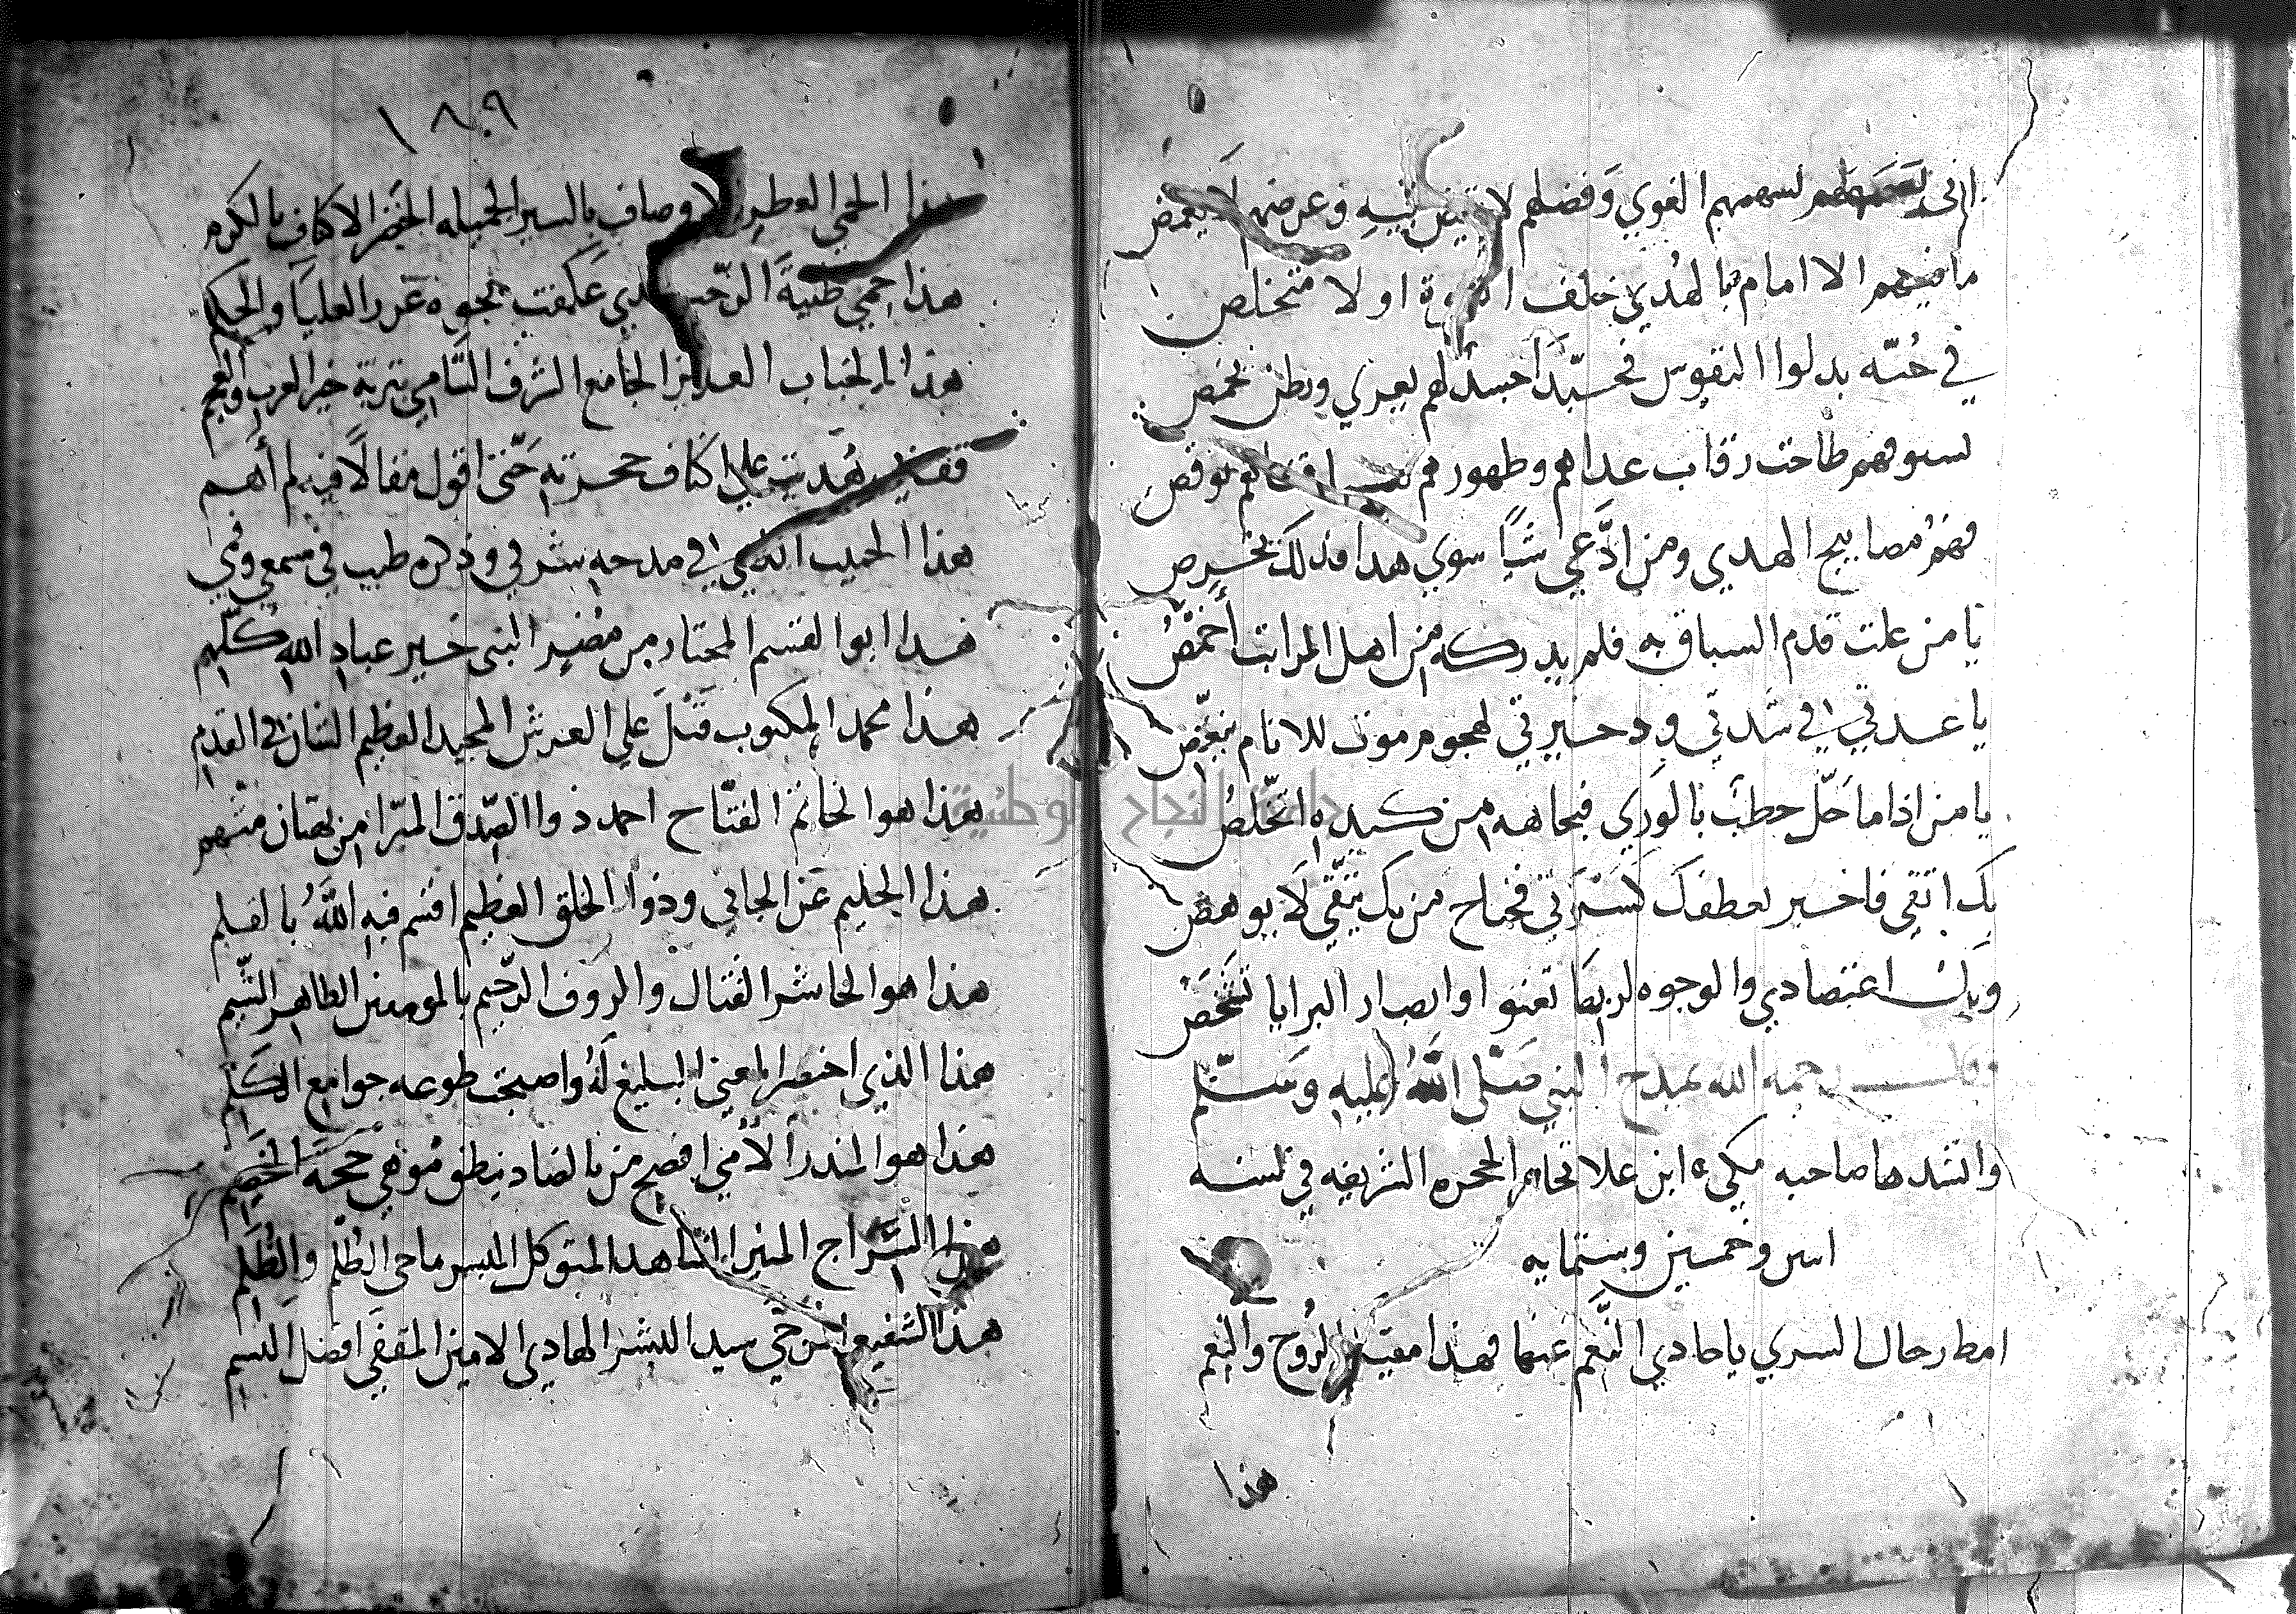 لسهمهم القوي وفضلهم لا وعرضهم لا يغمص
ما فيهم الا امام بالهدي خلف او لا متخلص
في حبّه بدلوا النفوس فحبّذا جسد لهم يعري وبطن تخمص
لسيوفهم طاحت رقاب عداهم وظهورهم توقص
فهم مصابيح الهدي ومن ادّعي شيا سوي هذا فذلك يخرص
يا من علت قدم السباق به فلم يدركه من اهل المراتب أخمص
يا عدتي في شدتي و د حيرتي لهجوم موت للانام ينغّص
يا من اذا ما حلّ خطب بالوري فبجاهه من كيده اتخلّص
بك اتقي فاخير بعطفك كسرتي فجناح من بك يتقي لا يوهص
وبك اعتضادي والوجوه لربها تعنو او ابصار البرايا تشخص
وقال رحمه الله يمدح النبي صلى الله عليه وسلم
وانشدها صاحبه مكي ابن علا تجاه الحجره الشريفه في لسنه
اسن وخمسين وستمايه
امطا رحال السري يا حادي النعم عنها فهذا مقيل الروح والنعم
هذا
١٨٠٩
هذا الحمي العطر الاوصاف بالسير الجميله الخضر الاكناف بالكرم
هذا حمي طيبة الرحب الذي عكفت بجوه غرر العليا والحكم
هذا الجناب العزيز الجامع الشرف السّامي بتربة خير العرب والعجم
فقف هُديت علي اكناف حجرته حتى اقول مقالا فيه لم أهم
هذا الحبيب الذي في مدحه شرفي وذكره طيب في مسمعي وفمي
هذا ابو القسم المختار من مضر النبى خير عباد الله كلّهم
هذا محمد المكتوب قبل علي العرش المجيد العظيم الشان في القدم
هذا هو الخاتم الفتّاح احمد ذو الصّدق المبّرا من بهتان متّهم
هذا الحليم عن الجاني وذو الخلق العظيم اقسم فيه اللّه بالقلم
هذا هو الحاشر القتال والروف الرّحيم بالمومنين الطاهر الشّيم
هذا الذي اختصر المعني البليغ لهُ واصبحت طوعه جوامع الكلم
هذا هو المنذر الأمي افصح من بالضاد ينطق موهي حجة الخصم
هذا السّراج المنير الشاهد المتوكل الميسر ماحي الظّلم والظُلم
هذا الشفيع المرتجي سيد البشر الهادي الامين المقفي افضل النسم